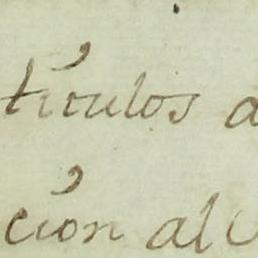 títulos a
ción al